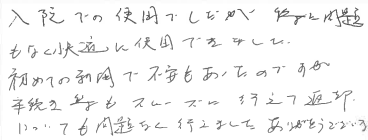 入院での使用でしたが、特に問題
もなく快適に使用できました。
初めての利用で不安もあったのですが
手続き等もスムーズに行えて返却
についても問題なく行えました ありがとうございま